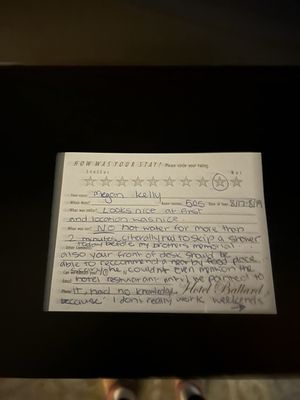 HOW WAS YOUR STAY? Please circle your rating.
Stellar Not
Your name: Megan Kelly
Room number: 505 Date of Stay: 8/17-8/19
What was stellar? Looks nice at first
and location was nice
What was not? No hot water for more than
2 minutes. Literally had to skip a shower
today before my brother's memorial
also your front of desk should be
able to reccommend a nearby food place.
he couldn't even mention the
Email hotel restaurant only he pointed to
Phone it, had no knowledge Hotel Ballard
because "I dont really work weekends